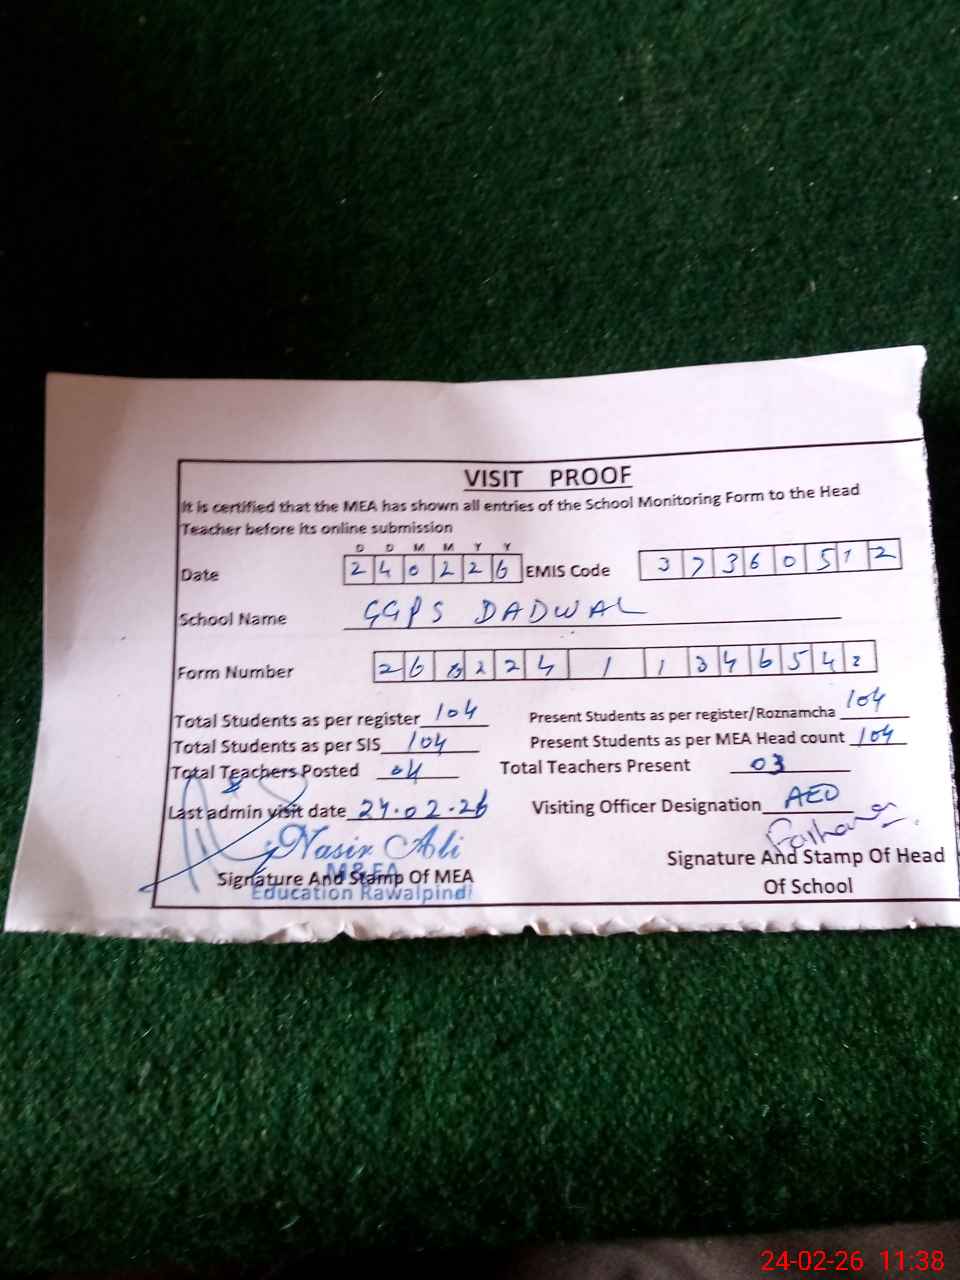 VISIT PROOF
It is certified that the MEA has shown all entries of the School Monitoring Form to the Head
Teacher before its online submission
D D M M Y Y
Date 2 4 0 2 2 6 EMIS Code 3 7 3 6 0 5 1 2
School Name GGPS DADWAL
Form Number 2 6 2 2 4 1 1 3 4 6 5 4 2
Total Students as per register 104 Present Students as per register/Roznamcha 104
Total Students as per SIS 104 Present Students as per MEA Head count 104
Total Teachers Posted 04 Total Teachers Present 03
Last admin visit date 24.02.26 Visiting Officer Designation AEO
Nasir Ali
M&EA
Education Rawalpindi
Signature And Stamp Of MEA
Signature And Stamp Of Head
Of School
24-02-26 11:38